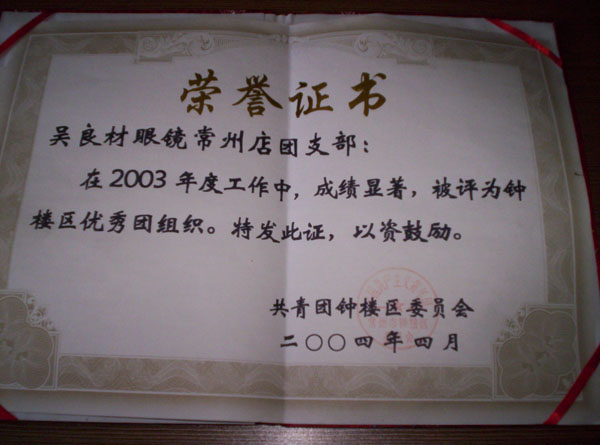 荣誉证书
吴良材眼镜常州店团支部：
在2003年度工作中，成绩显著，被评为钟
楼区优秀团组织。特发此证，以资鼓励。
共青团钟楼区委员会
二〇〇四年四月